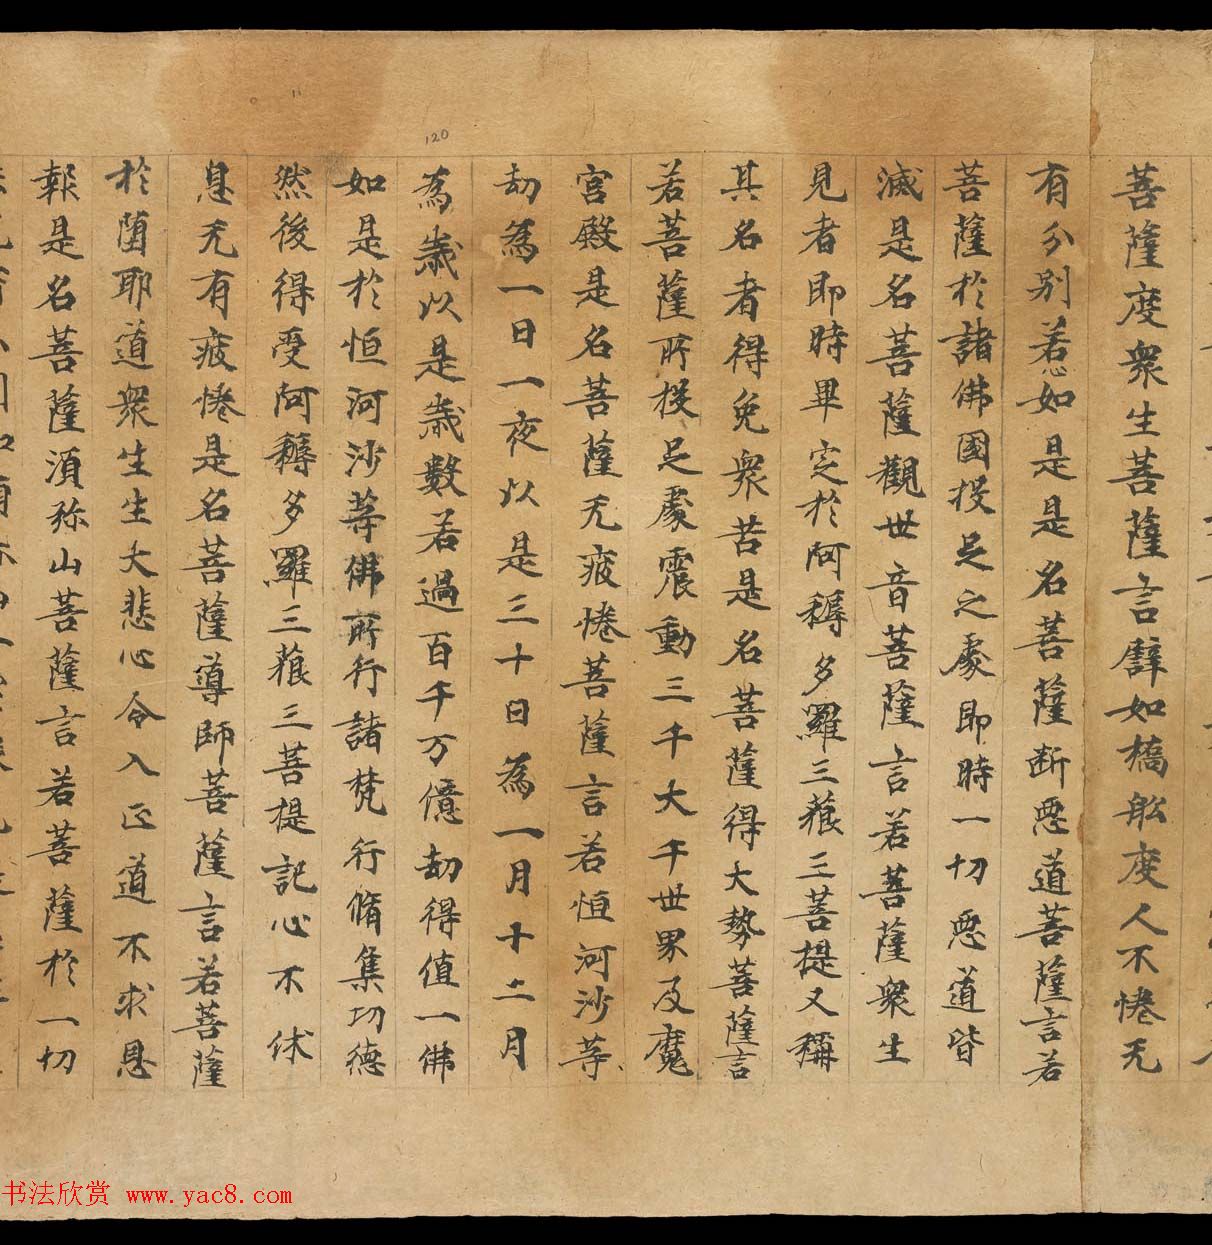 菩薩度衆生菩薩言譬如橋舩度人不惓无
有分别若心如是是名菩薩断惡道菩薩言若
菩薩於諸佛國投足之處即時一切惡道皆
滅是名菩薩觀世音菩薩言若菩薩衆生
見者即時畢定於阿耨多羅三藐三菩提又稱
其名者得免衆苦是名菩薩得大勢菩薩言
若菩薩所投足處震動三千大千世界及魔
宫殿是名菩薩无疲惓菩薩言若恒河沙等
劫為一日一夜以是三十日為一月十二月
為歲以是歲數若過百千万億劫得值一佛
如是於恒河沙等佛所行諸梵行脩集功德
然後得受阿耨多羅三藐三菩提記心不休
息无有疲惓是名菩薩導師菩薩言若菩薩
於墮耶道衆生生大悲心令入正道不求恩
報是名菩薩湏弥山菩薩言若菩薩於一切
120
书法欣赏 www.yac8.com